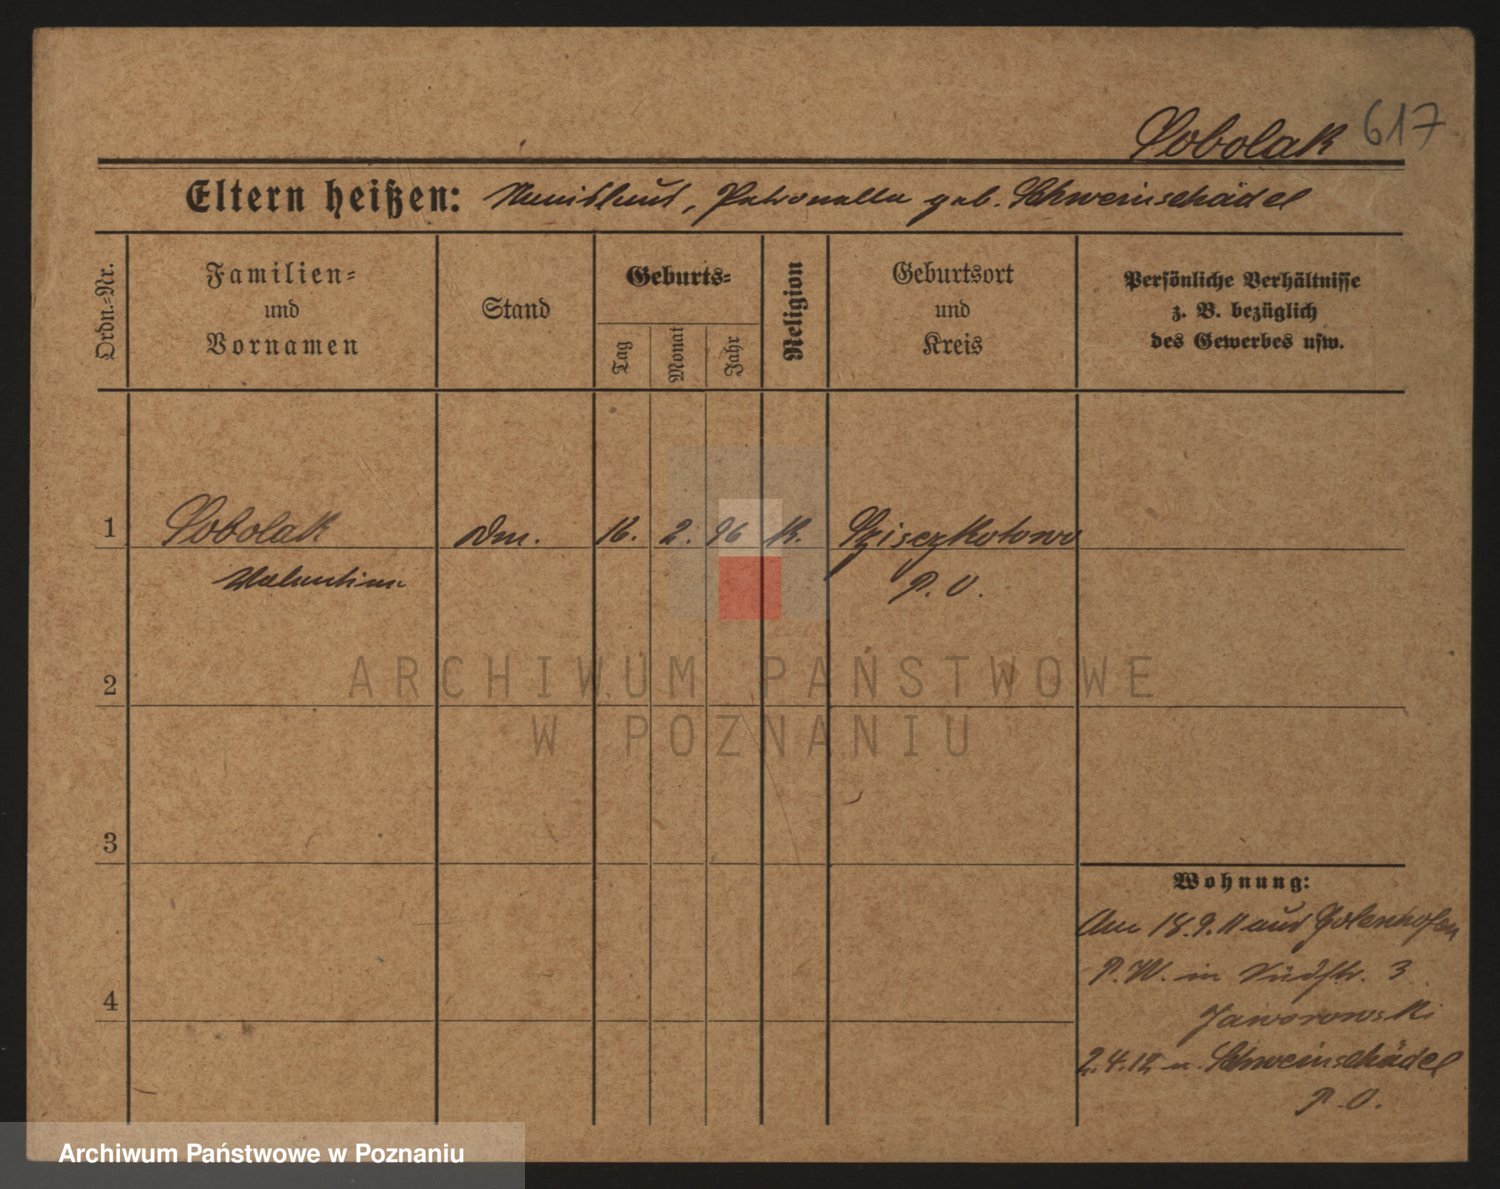 Sobolak 617
Eltern heißen: Petronella geb. Schweinschädel
Ordn.-Nr.
Familien-
und
Vornamen
Stand
Geburts-
Tag
Monat
Jahr
Religion
Geburtsort
und
Kreis
Persönliche Verhältnisse
z. B. bezüglich
des Gewerbes usw.
1 Sobolak 16. 2. 96 K.
Valentin P. O.
2
ARCHIWUM PAŃSTWOWE
W POZNANIU
3
Wohnung:
Am 18.9.11 aus Golenhofen
P. W. in Südstr. 3
4
Jaworowski
2.4.12 n. Schweinschädel
P. O.
Archiwum Państwowe w Poznaniu